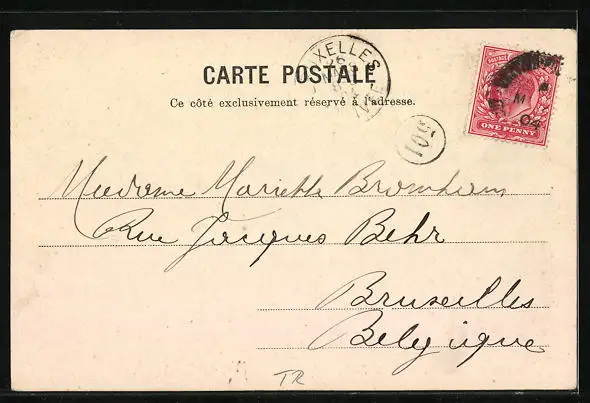 BRUXELLES
CARTE POSTALE
Ce côté exclusivement réservé à l'adresse.
POSTAGE
M
04
ONE PENNY
108
Madame Mariette
Rue Jacques Behr
Bruxelles
Belgique
TR